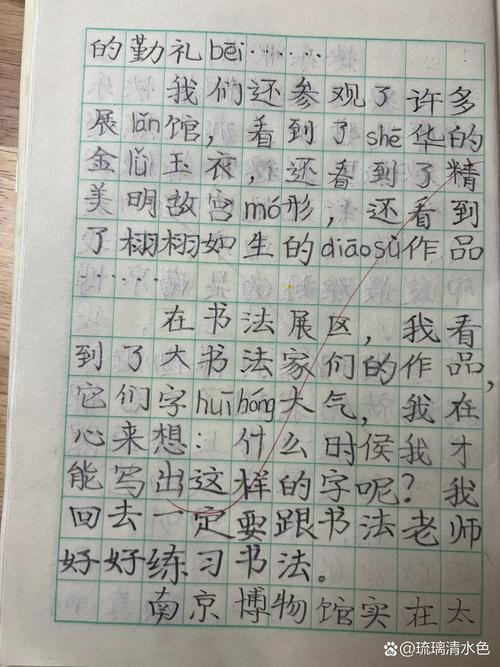 的勤礼bēi……
我们还参观了许多
展lǎn馆，看到了shē华的
金lǚ玉衣，还看到了精
美明故宫mó形，还看到
了栩栩如生的diāosù作品
……
在书法展区，我看
到了大书法家们的作品，
它们字huībóng大气，我在
心来想：什么时侯我才
能写出这样的字呢？我
回去一定要跟书法老师
好好练习书法。
南京博物馆实在太
@琉璃清水色